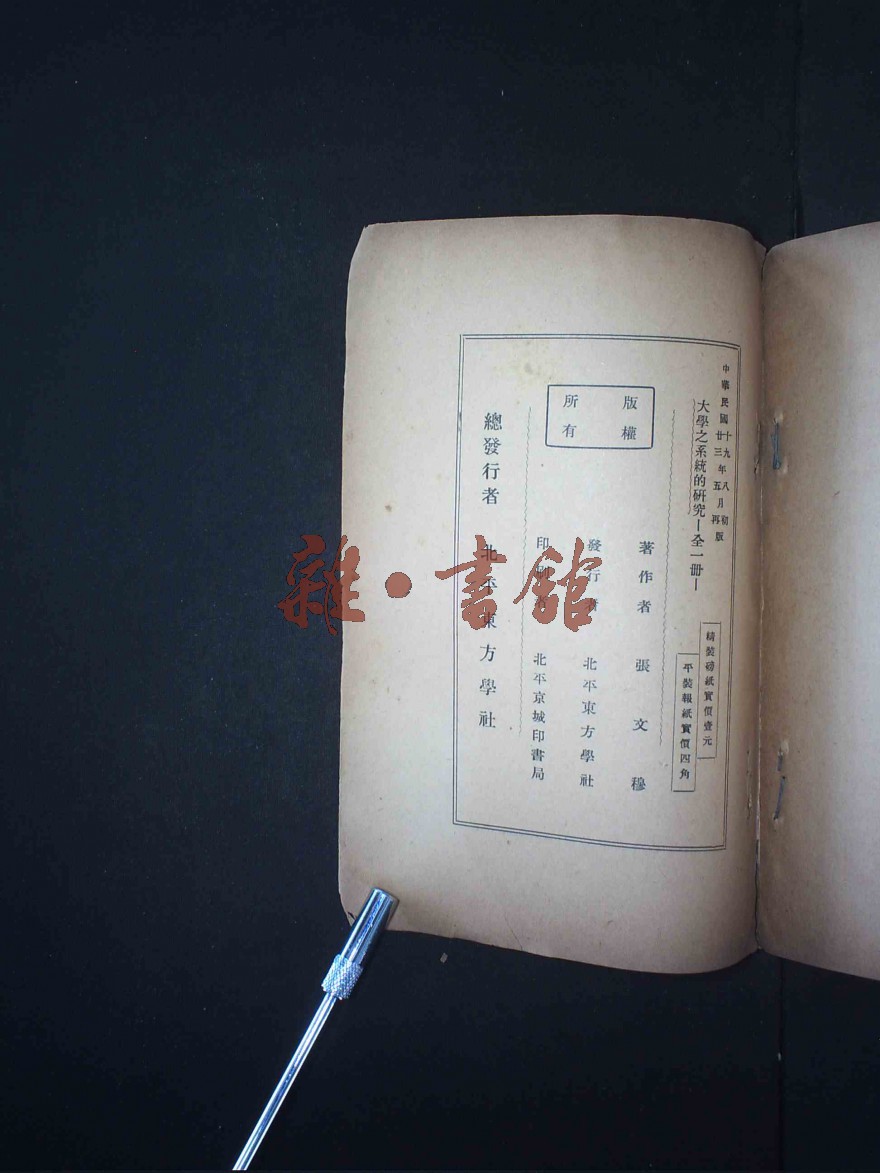 中華民國十九年八月初版
廿三年五月再版
大學之系統的研究—全一冊—
精裝磅紙實價壹元
平裝報紙實價四角
版權
所有
著作者 張文穆
發行者 北平東方學社
印刷者 北平京城印書局
總發行者 北平東方學社
雜·書館